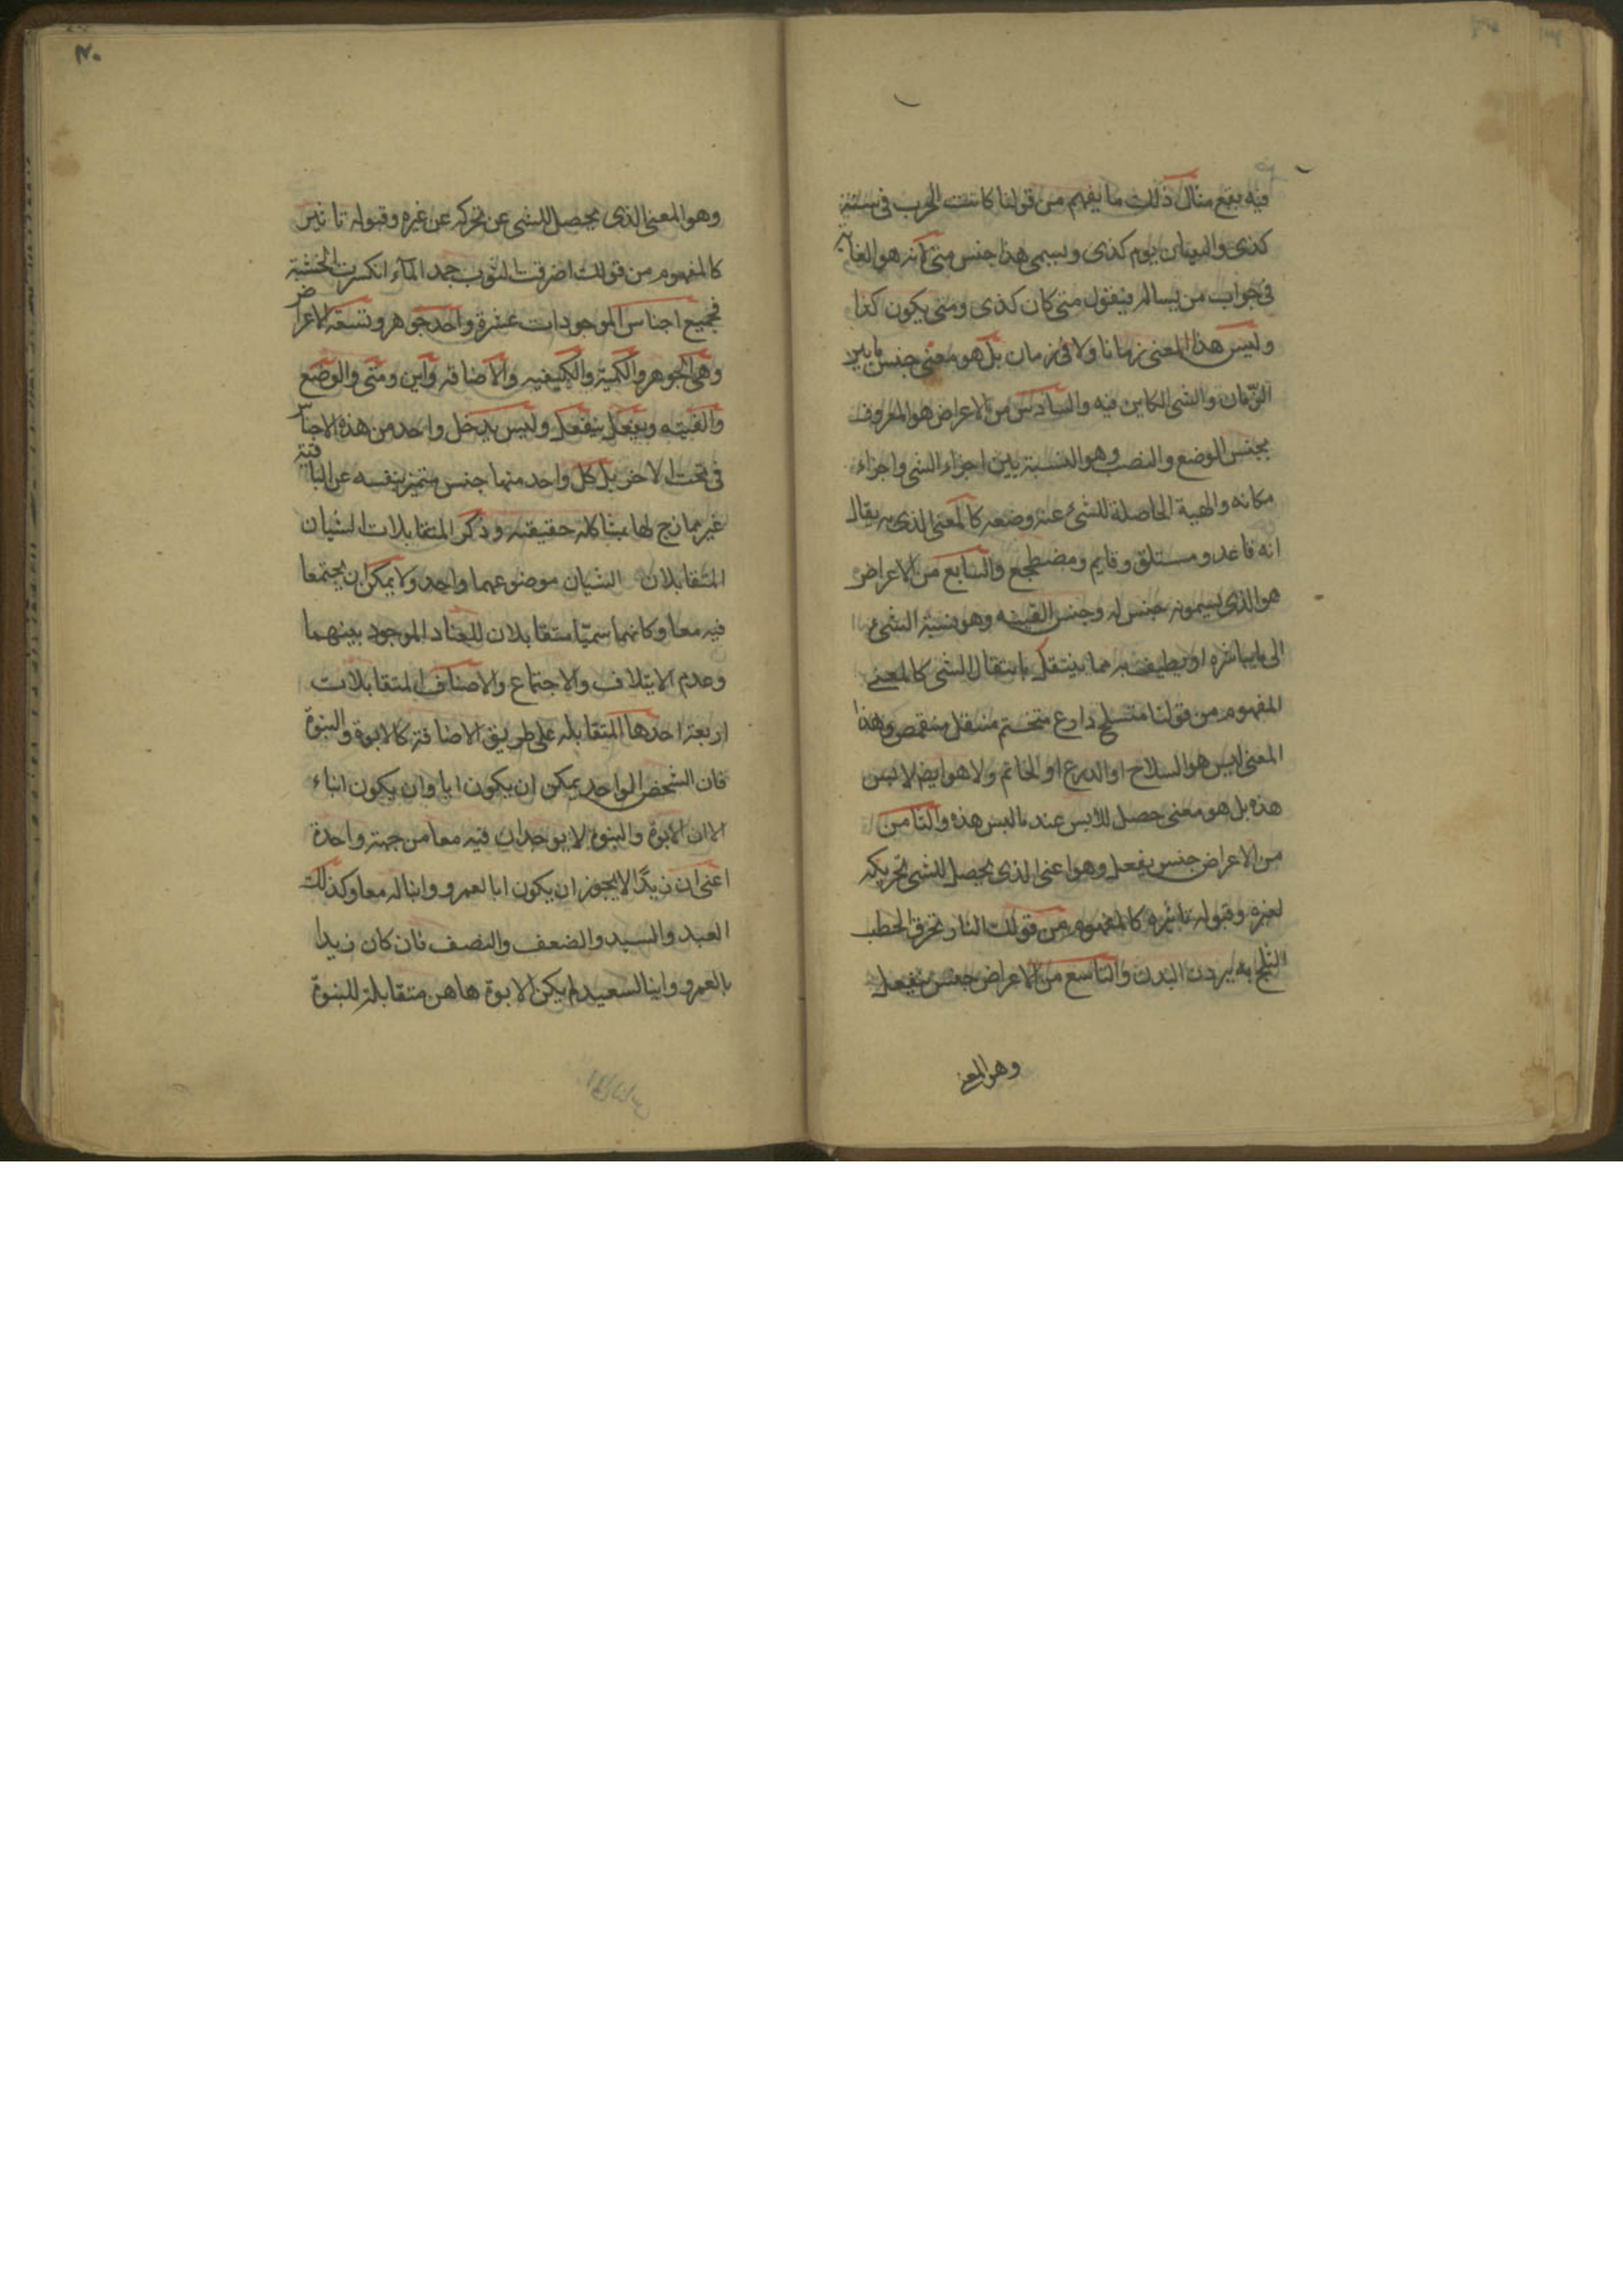 فيه يقع مثال ذلك ما يفهم من قولنا كانت الحرب في سنة
كذى والميدان يوم كذى ويسمى هذا جنس متى لانه هو الغاية
في جواب من يسال فيقول متى كان كذى ومتى يكون كذا
وليس هذا المعنى زمانا ولا في زمان بل هو معنى جنس ما بين
الزمان والشي الكاين فيه والسادس من الاعراض هو المعروف
بجنس الوضع والنصب وهو النسبة بين اجزاء الشي واجزاء
مكانه والهية الحاصلة للشئ عند وضعه كالمعنى الذي به يقال
انه قاعد ومستلق وقايم ومضطجع والسابع من الاعراض
هو الذي يسمونه جنس له وجنس القنيه وهو نسبة الشئ
الى ما يباشره او يطيف به مما ينتقل بانتقال الشي كالمعنى
المفهوم من قولنا متسلح دارع متختم منتعل متقمص وهذا
المعنى ليس هو السلاح او الدرع او الخاتم ولا هو ايضا لابس
هذه بل هو معنى حصل للابس عند ما لبس هذه والثامن
من الاعراض جنس يفعل وهو اعنى الذي يحصل للشي تحريكه
لغيره وقبوله تاثيره كالمفهوم من قولك النار تحرق الحطب
الثلج يبرد البدن والتاسع من الاعراض جنس ينفعل
وهو المعنى
٢٠
وهو المعنى الذي يحصل للشي عن تحركه عن غيره وقبوله تاثير
كالمفهوم من قولك احترقت الثوب جمد المآء انكسرت الخشبة
فجميع اجناس الموجودات عشرة واحد جوهر وتسعة الاعراض
وهي الجوهر والكمية والكيفيه والاضافه واين ومتى والوضع
والقنيه ويفعل ينفعل وليس يدخل واحد من هذه الاجناس
في تحت الاخر بل كل واحد منها جنس متميز بنفسه عن الباقية
غير ممازج لها بمشاكله حقيقيه وذكر المتقابلات الشيان
المتقابلان الشيان موضوعهما واحد ولا يمكن ان يجتمعا
فيه معا وكانهما سميا متقابلان للعناد الموجود بينهما
وعدم الايتلاف والاجتماع والاصناف المتقابلات
اربعة احدها المتقابله على طريق الاضافة كالابوة والبنوة
فان الشخص الواحد يمكن ان يكون ابا وان يكون ابناء
الا ان الابوة والبنوة لا يوجدان فيه معا من جهة واحدة
اعنى ان زيدا لا يجوز ان يكون ابا لعمرو وابنا له معا وكذلك
العبد والسيد والضعف والنصف فان كان زيدا
ابا لعمرو وابنا لسعيد لم يكن الابوة هاهن متقابلة للبنوة